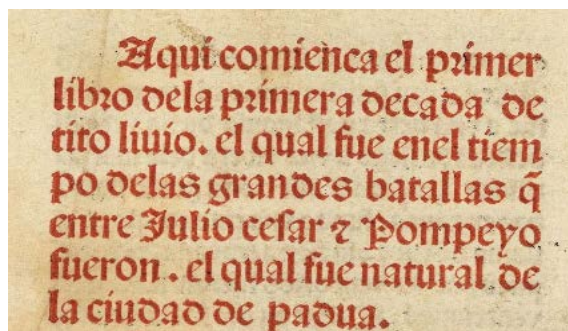 Aqui comiença el primer
libro dela primera decada de
tito liuio. el qual fue enel tiem
po delas grandes batallas q̃
entre Julio cesar ⁊ Pompeyo
fueron. el qual fue natural de
la ciudad de padua.